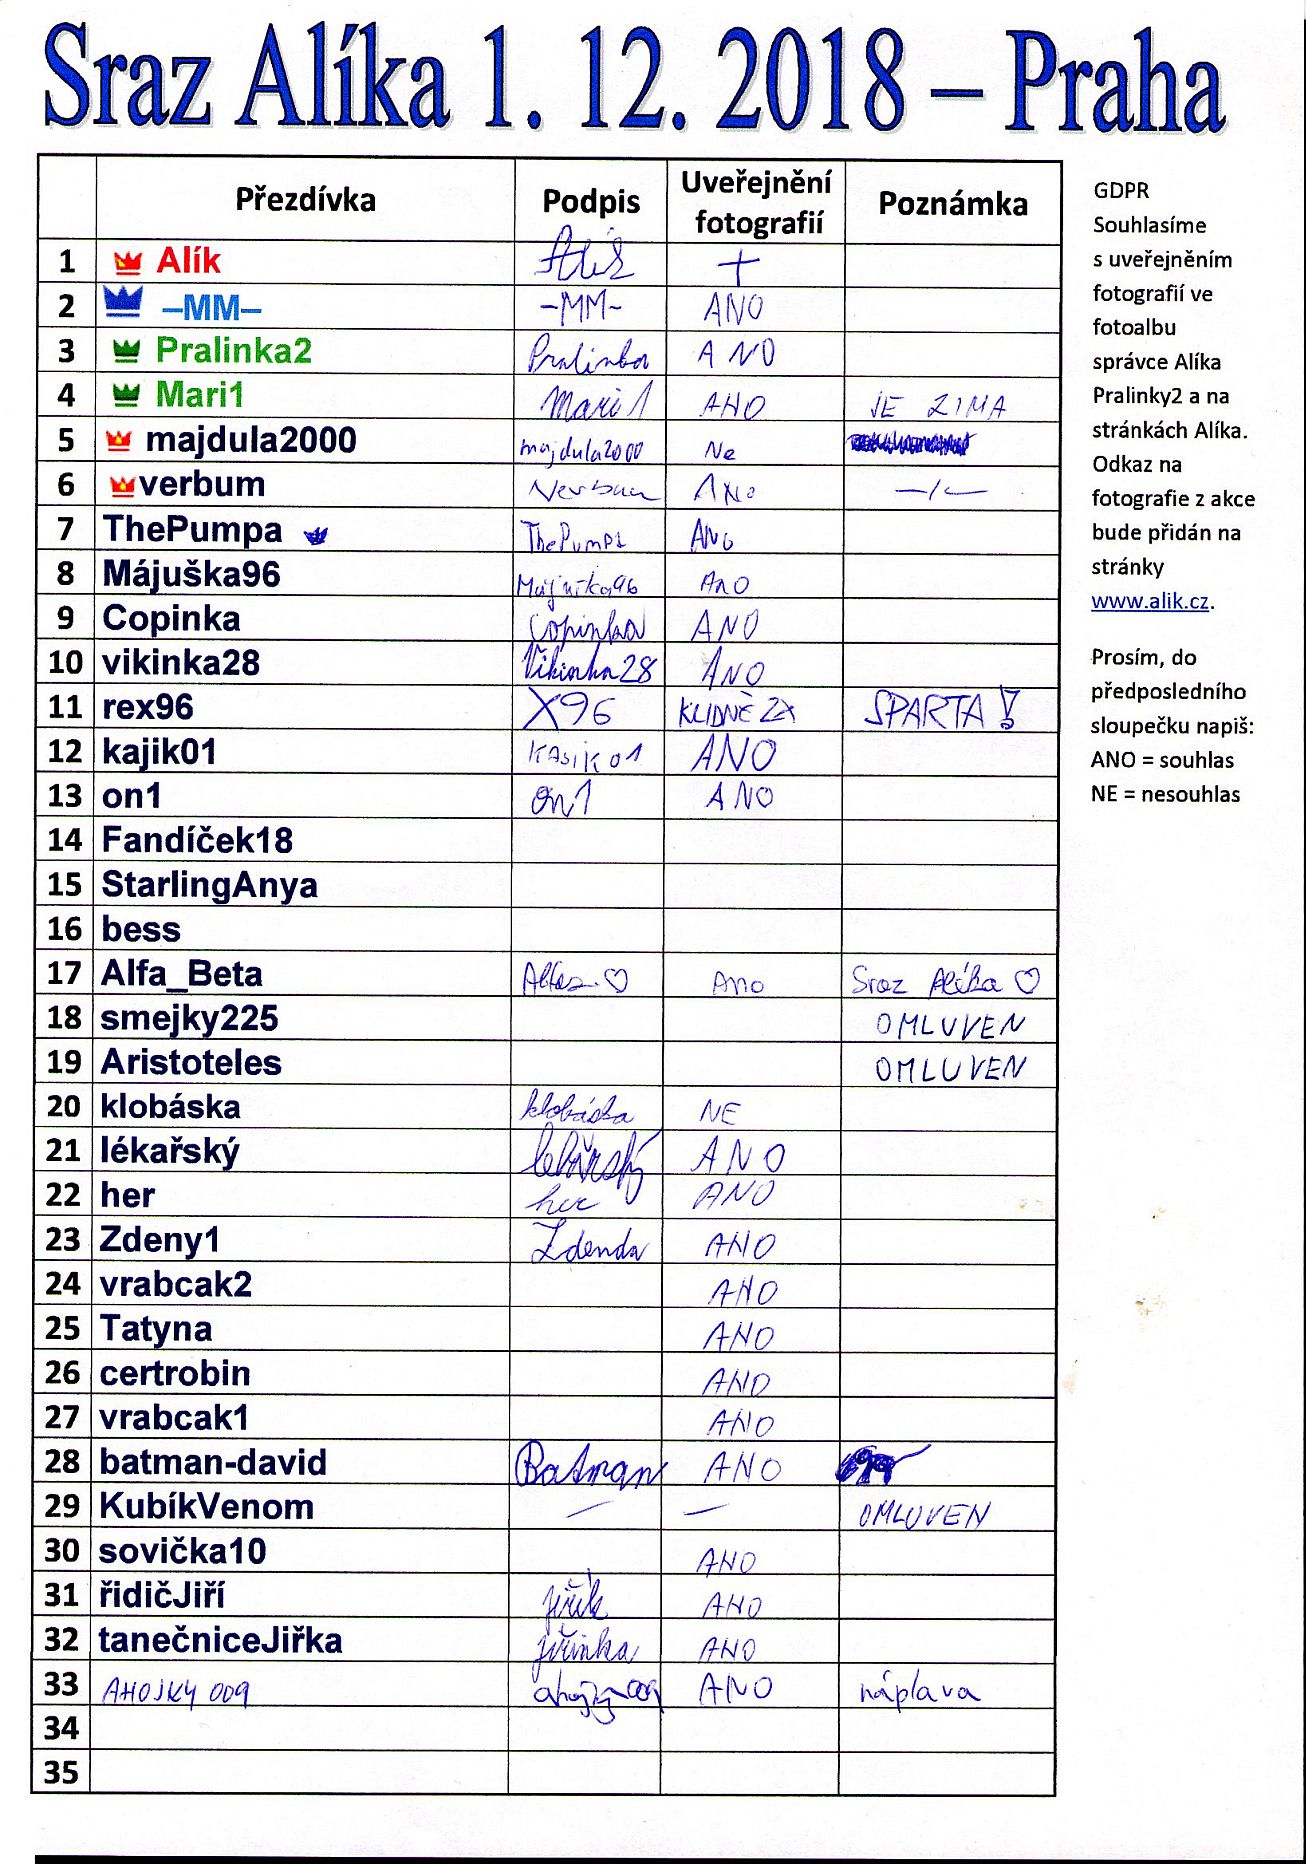 Sraz Alíka 1. 12. 2018 – Praha
Přezdívka Podpis Uveřejnění fotografií Poznámka
1 Alík Alík +
2 –MM– -MM- ANO
3 Pralinka2 Pralinka ANO
4 Mari1 Mari1 ANO JE ZIMA
5 majdula2000 majdula2000 Ne
6 verbum Verbum ANo —/—
7 ThePumpa ThePumpa ANo
8 Májuška96 Májuška96 AnO
9 Copinka Copinka ANO
10 vikinka28 Vikinka28 ANO
11 rex96 X96 KLIDNĚ 2X SPARTA!
12 kajik01 KAJIK01 ANO
13 on1 on1 ANO
14 Fandíček18
15 StarlingAnya
16 bess
17 Alfa_Beta ♡ Ano Sraz Alíka ♡
18 smejky225 OMLUVEN
19 Aristoteles OMLUVEN
20 klobáska klobáska NE
21 lékařský lékařský ANO
22 her her ANO
23 Zdeny1 Zdenda ANO
24 vrabcak2 ANO
25 Tatyna ANO
26 certrobin ANO
27 vrabcak1 ANO
28 batman-david Batman ANO
29 KubíkVenom — — OMLUVEN
30 sovička10 ANO
31 řidičJiří Jiřík ANO
32 tanečniceJiřka jiřinka ANO
33 AHOJKY 009 ahojky009 ANO náplava
34
35
GDPR
Souhlasíme
s uveřejněním
fotografií ve
fotoalbu
správce Alíka
Pralinky2 a na
stránkách Alíka.
Odkaz na
fotografie z akce
bude přidán na
stránky
www.alik.cz.
Prosím, do
předposledního
sloupečku napiš:
ANO = souhlas
NE = nesouhlas